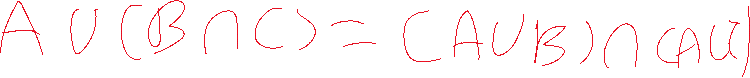 A ∪ (B ∩ C) = (A ∪ B) ∩ (A ∪ C)